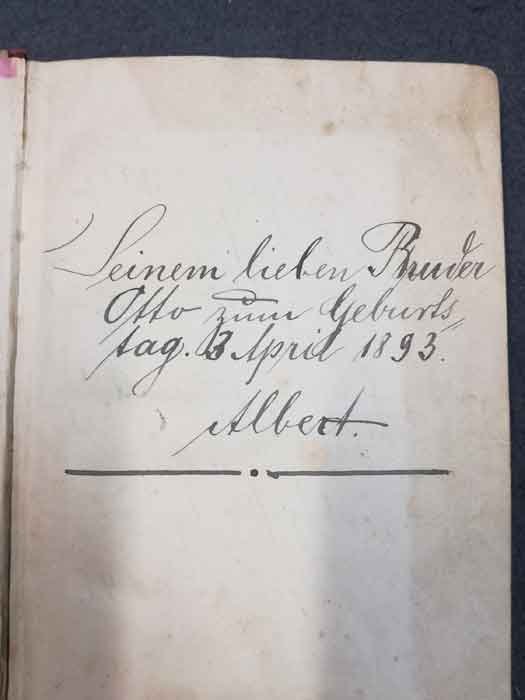 Seinem lieben Bruder
Otto zum Geburts„
tag. 3 April 1893.
Albert.